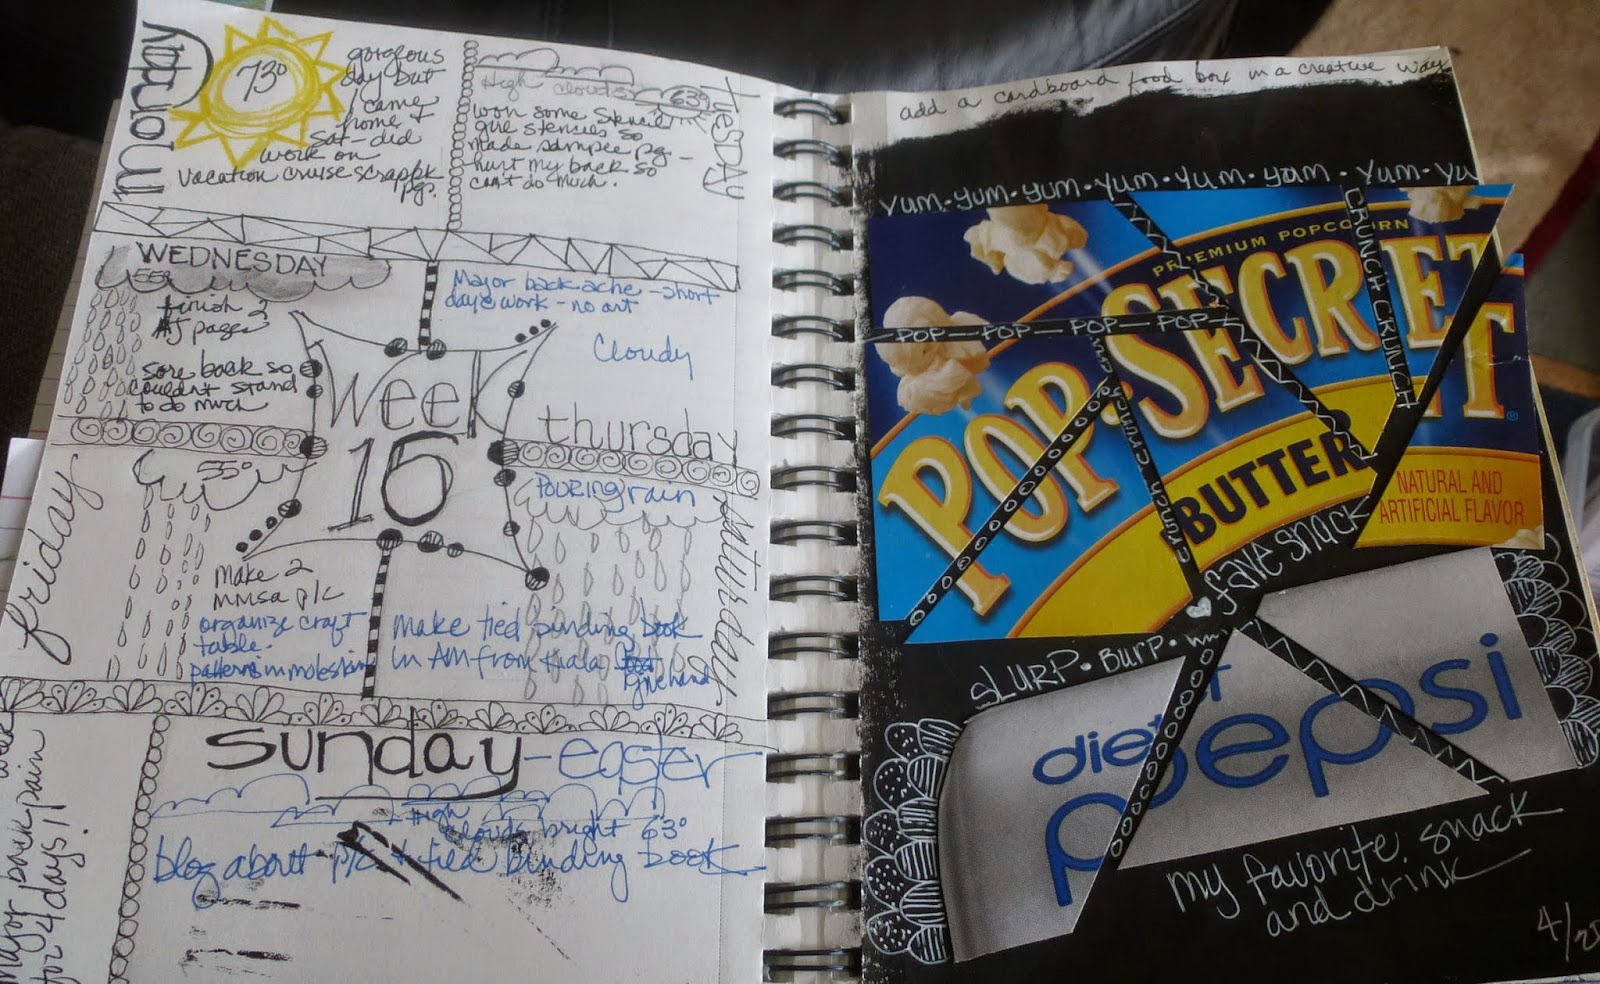 Monday
73°
gorgeous
day but
I came
home &
sat - did
work on
vacation cruise scrapbk
pgs.
Tuesday
High clouds 63°
won some stencil
give stencils so
made sample pg -
hurt my back so
can't do much.
WEDNESDAY
55°
finish 2
AJ pages
sore back so
couldn't stand
to do much
Major back-ache - short
day @ work - no art
Cloudy
thursday
Week
16
friday
55°
make 2
mmsa p/c
organize craft
table.
patterns in moleskin
Pouring rain
saturday
make tied binding book
in AM from Kala
give hand
sunday - easter
High
clouds bright 63°
blog about p/c & tied binding book
major back pain
for 4 days!!
add a cardboard food box in a creative way
yum · yum · yum · yum · yum · yum · yum · yu
CRUNCH CRUNCH
PREMIUM POPCORN
POP - POP - POP - POP
POP·SECRET
crunch crunch
BUTTER
NATURAL AND
ARTIFICIAL FLAVOR
fave snack
SLURP · BURP ·
diet
pepsi
my favorite snack
and drink